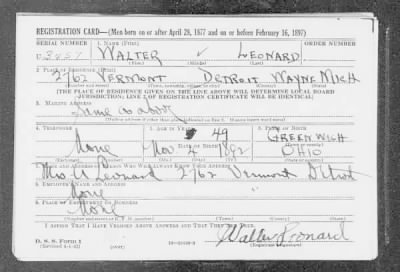 REGISTRATION CARD—(Men born on or after April 28, 1877 and on or before February 16, 1897)
SERIAL NUMBER 1. NAME (Print)
WALTER LEONARD
(First) (Middle) (Last)
2. PLACE OF RESIDENCE (Print)
2762 VERMONT DETROIT WAYNE MICH
(Number and street) (Town, township, village, or city) (County) (State)
[THE PLACE OF RESIDENCE GIVEN ON THE LINE ABOVE WILL DETERMINE LOCAL BOARD
JURISDICTION; LINE 2 OF REGISTRATION CERTIFICATE WILL BE IDENTICAL]
3. MAILING ADDRESS
Same as above
[Mailing address if other than place indicated on line 2. If same insert word same]
4. TELEPHONE 5. AGE IN YEARS 6. PLACE OF BIRTH
49 GREENWICH
None DATE OF BIRTH
Nov 2 1892 OHIO
7. NAME AND ADDRESS OF PERSON WHO WILL ALWAYS KNOW YOUR ADDRESS
Mrs Leonard 2762 Vermont Detroit
8. EMPLOYER'S NAME AND ADDRESS
None
9. PLACE OF EMPLOYMENT OR BUSINESS
None
I AFFIRM THAT I HAVE VERIFIED ABOVE ANSWERS AND THAT THEY ARE TRUE.
D. S. S. Form 1
(Revised 4-1-42) (over)
Walter Leonard
(Registrant's signature)